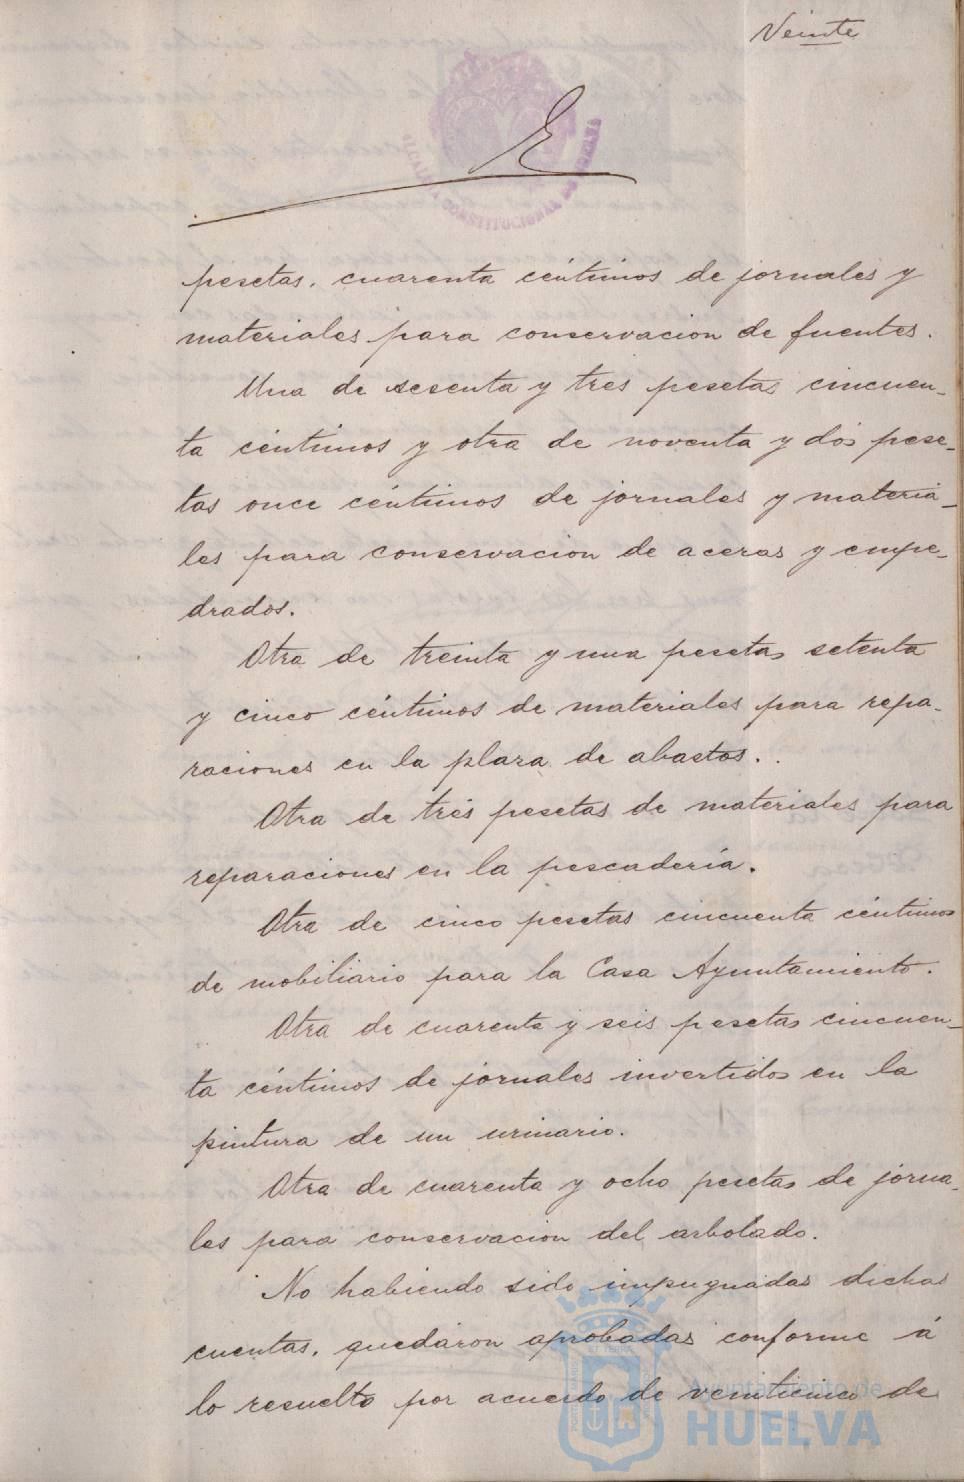 Veinte
ALCALDIA CONSTITUCIONAL DE HUELVA
pesetas. cuarenta céntimos de jornales y
materiales para conservacion de fuentes.
Una de sesenta y tres pesetas cincuen-
ta céntimos y otra de noventa y dos pese-
tas once céntimos de jornales y materia-
les para conservacion de aceras y empe-
drados.
Otra de treinta y una pesetas setenta
y cinco céntimos de materiales para repa-
raciones en la plaza de abastos.
Otra de tres pesetas de materiales para
reparaciones en la pescadería.
Otra de cinco pesetas cincuenta céntimos
de mobiliario para la Casa Ayuntamiento.
Otra de cuarenta y seis pesetas cincuen-
ta céntimos de jornales invertidos en la
pintura de un urinario.
Otra de cuarenta y ocho pesetas de jorna-
les para conservacion del arbolado.
No habiendo sido impugnadas dichas
cuentas, quedaron aprobadas conforme á
lo resuelto por acuerdo de veinticinco de
Ayuntamiento de
HUELVA